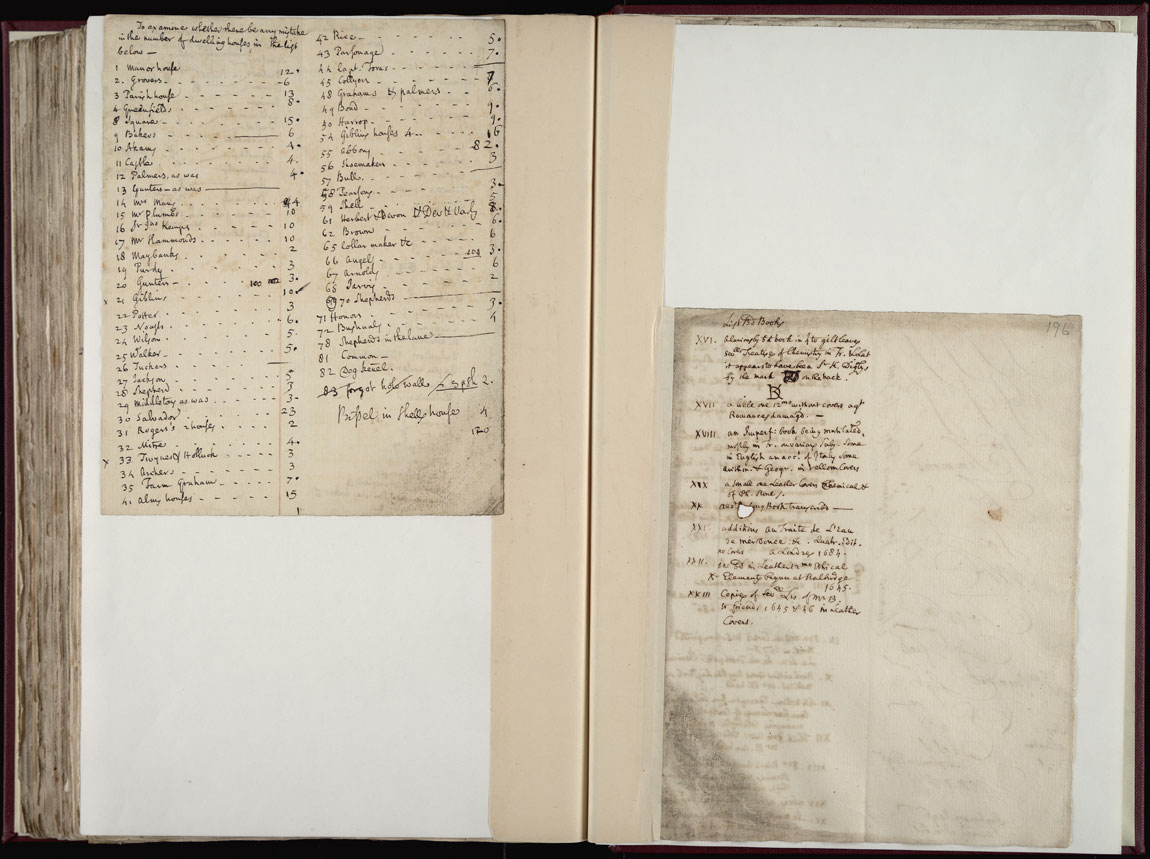 To examine whether there be any mistake
in the number of dwelling houses in the list
below —
1 Manor house 12
2. Grovers 6
3 Parish house 13
4 Greenfields 8
8 Square 15
9 Bakers 6
10 4
11 Castle 4
12 Palmers, as was 4
13 Gunters as was
14 Mrs 4
15 Mr Plumbs 10
16 Kemps 10
17 Mr Hammonds 10
18 Maybanks 2
19 Purdy 3
20 Gunters 100 3
x 21 Giblins 10
22 Potter 3
23 6
24 Wilson 5
25 Walker 5
26 Tuckers
27 Jackson 5
28 Shepherd 3
29 Middleton as was 3
30 Salvador 23
31 Rogers's 2 houses 2
32 Mitre 4
x 33 3
34 Archers 3
35 Farm Graham 7
41 Alms houses 15
42 Rice 5
43 Parsonage 7
44 Capt.
45 Collyers 7
48 Grahams & palmers 6
49 Bond 9
50 Harrop 9
54 Giblins houses 4 16
55 82
56 Shoemaker 3
57 Bull
58 Pearsons 3
59 Shell 5
61 Herbert & Devon 8
62 Brown 6
65 Collar maker &c 6
66 Angel 3
67 Arnold 6
68 Jarvis 2
69 70 Shepherds
71 Honors 3
72 Bushnals 4
78 Shepherds in the lane
81 Common
82 Dog Kenel.
83 forgot 2.
Bissel in Shells house 4
196
List Books
XVI. book in 4to gilt leaves
Treatise of Chemistry in Fr. & Lat
it appears to have been Sr K. Digbys
by the mark on the back.
XVII a little one 12mo without covers agt
Romances damagd. —
XVIII an Imperf: book being mutilated,
mostly in Fr. on various Subj: Some
in English an acct. of Italy some
Arithm. & Geogr. in vellom Covers
XIX a small one Leather Covers Chemical &
of Ph. Stone.
XX Book
XXI additions au Traité de L'eau
de mer Douce &c. Quatr. Edit.
no Covers a Londres 1684.
XXII. in Leather 12mo Ethical
X Elements begun at Stalbridge
1645.
XXIII Copies of Sevll Lrs of Mr B.
to friends 1645 & 46 in Leather
Covers.